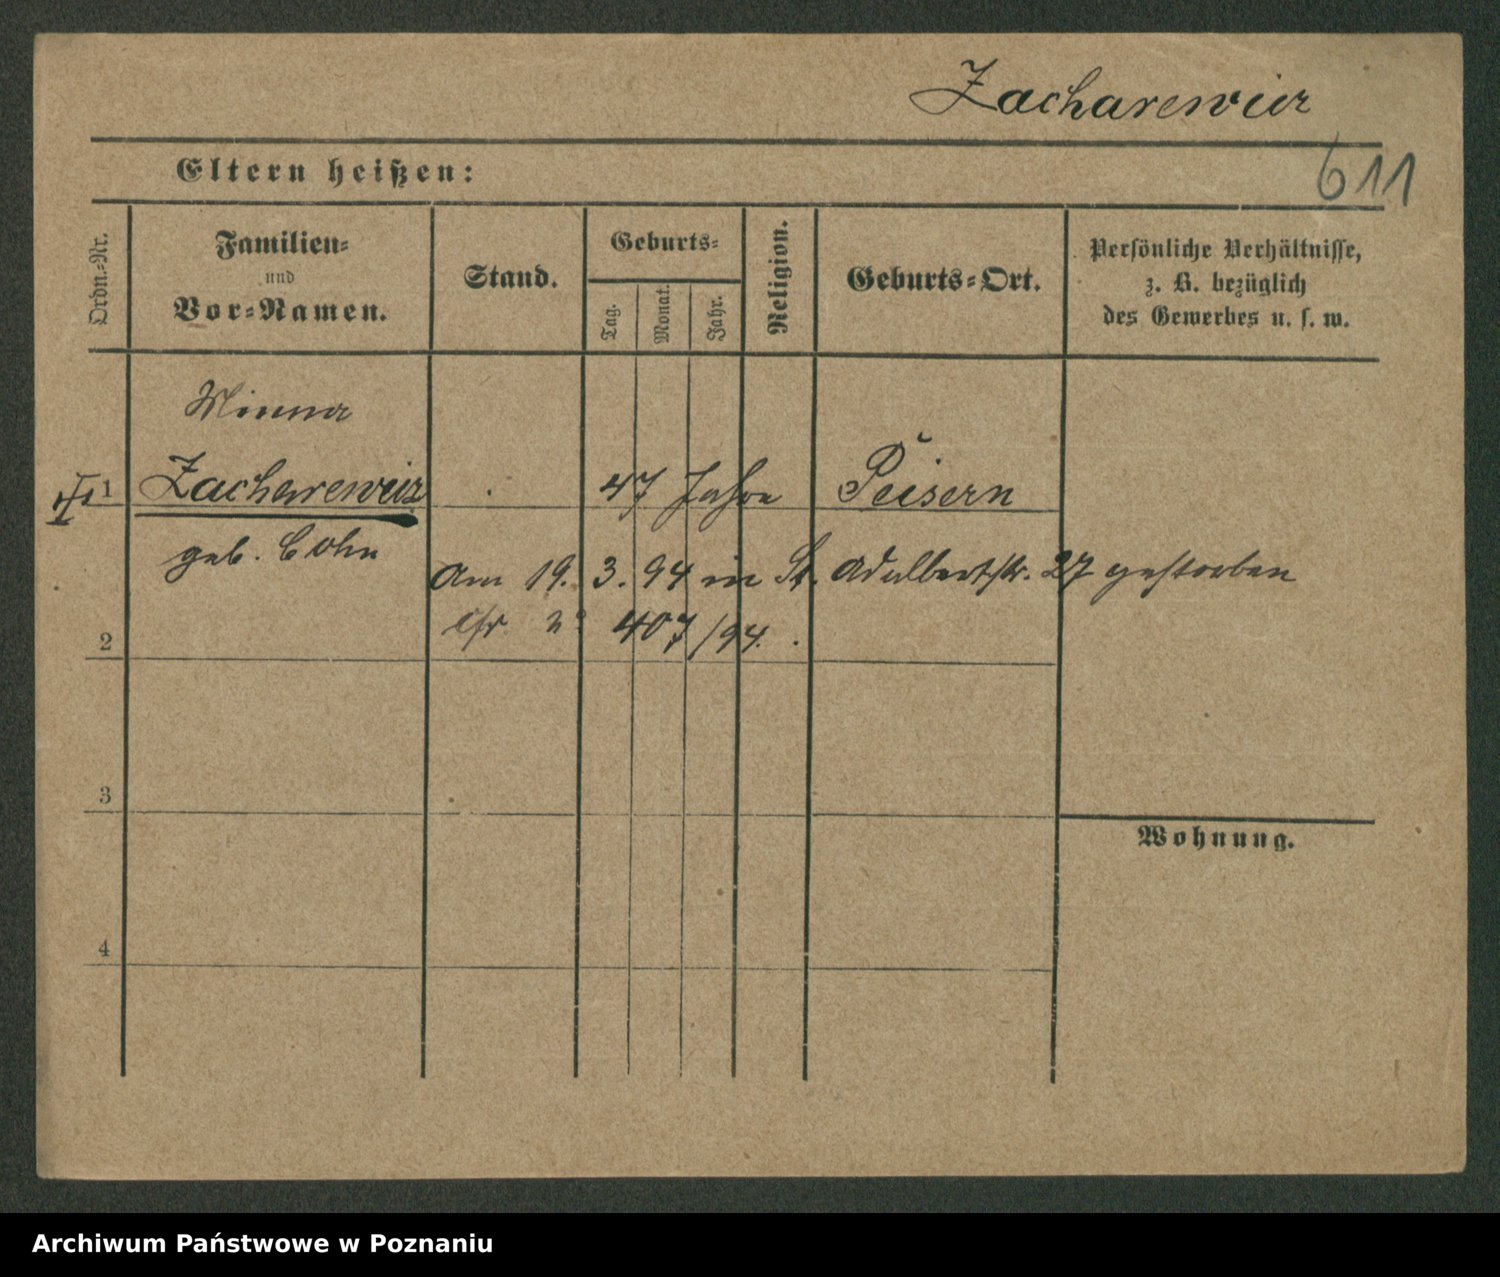 Zacharewicz
611
Eltern heißen:
Ordn.-Nr.
Familien-
und
Vor-Namen.
Stand.
Geburts-
Tag.
Monat.
Jahr.
Religion.
Geburts-Ort.
Persönliche Verhältnisse,
z. B. bezüglich
des Gewerbes u. s. w.
Minna
1 Zacharewicz 47 Jahre Peisern
geb. Cohn
Am 19. 3. 94 in St. Adalbertstr. 27 gestorben
2 cfr 407/94.
3
Wohnung.
4
Archiwum Państwowe w Poznaniu